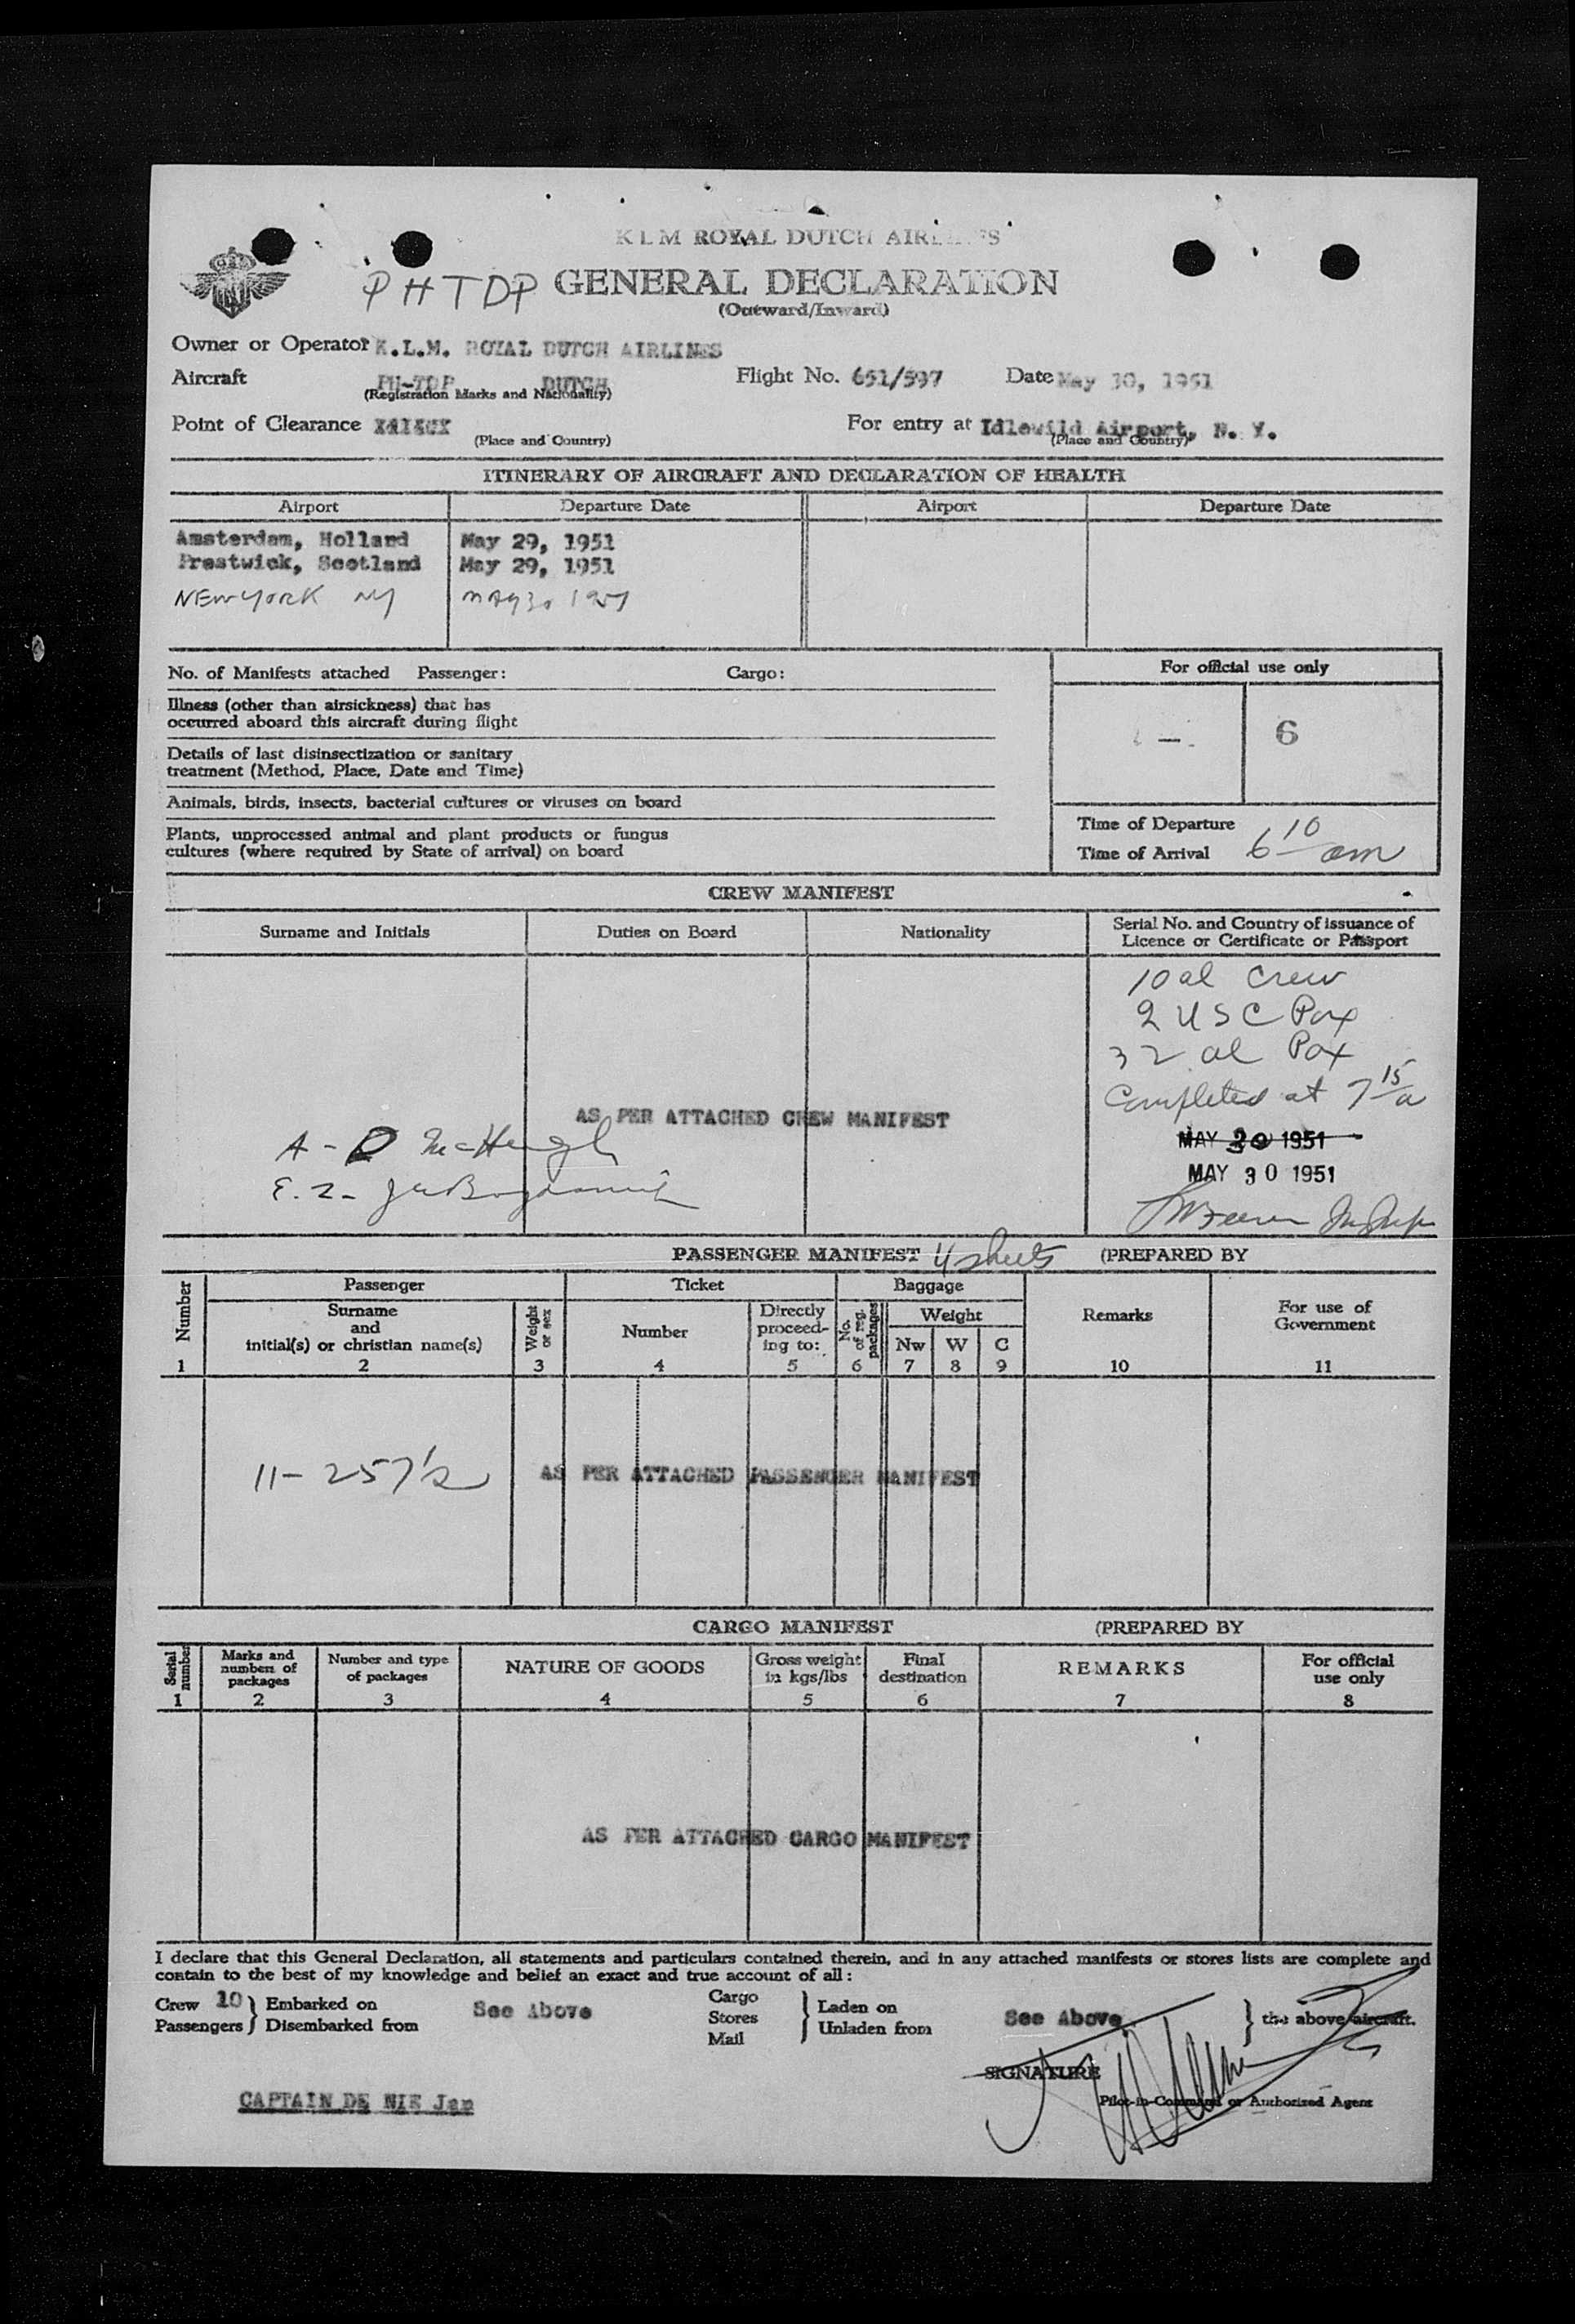 KLM ROYAL DUTCH AIRLINES
PHTDP GENERAL DECLARATION
(Outward/Inward)
Owner or Operator K.L.M. ROYAL DUTCH AIRLINES
Aircraft PH-TDP DUTCH Flight No. 651/597 Date May 30, 1951
(Registration Marks and Nationality)
Point of Clearance For entry at Idlewild Airport, N. Y.
(Place and Country) (Place and Country)
ITINERARY OF AIRCRAFT AND DECLARATION OF HEALTH
Airport Departure Date Airport Departure Date
Amsterdam, Holland May 29, 1951
Prestwick, Scotland May 29, 1951
NEW YORK NY MAY 30 1951
No. of Manifests attached Passenger: Cargo: For official use only
Illness (other than airsickness) that has
occurred aboard this aircraft during flight
6
Details of last disinsectization or sanitary
treatment (Method, Place, Date and Time)
Animals, birds, insects, bacterial cultures or viruses on board
Plants, unprocessed animal and plant products or fungus
cultures (where required by State of arrival) on board
Time of Departure
Time of Arrival 6 10 am
CREW MANIFEST
Surname and Initials Duties on Board Nationality Serial No. and Country of issuance of
Licence or Certificate or Passport
10 al Crew
2 USC Pax
32 al Pax
Completed at 7 15 a
AS PER ATTACHED CREW MANIFEST
A - D McHugh
MAY 20 1951
MAY 30 1951
E. 2 -
PASSENGER MANIFEST 4 sheets (PREPARED BY
Number Passenger Ticket Baggage Remarks For use of
Government
Surname
and
initial(s) or christian name(s)
Weight
or sex
Number
Directly
proceed-
ing to:
No.
of reg.
packages
Weight
Nw W C
1 2 3 4 5 6 7 8 9 10 11
11 - 257's
AS PER ATTACHED PASSENGER MANIFEST
CARGO MANIFEST (PREPARED BY
Serial
number
Marks and
numbers of
packages
Number and type
of packages
NATURE OF GOODS
Gross weight
in kgs/lbs
Final
destination
REMARKS
For official
use only
1 2 3 4 5 6 7 8
AS PER ATTACHED CARGO MANIFEST
I declare that this General Declaration, all statements and particulars contained therein, and in any attached manifests or stores lists are complete and
contain to the best of my knowledge and belief an exact and true account of all:
Crew 10 } Embarked on
Passengers } Disembarked from
See Above
Cargo
Stores
Mail
} Laden on
Unladen from
See Above
} the above aircraft.
SIGNATURE
Pilot-in-Command or Authorized Agent
CAPTAIN DE NIE Jan